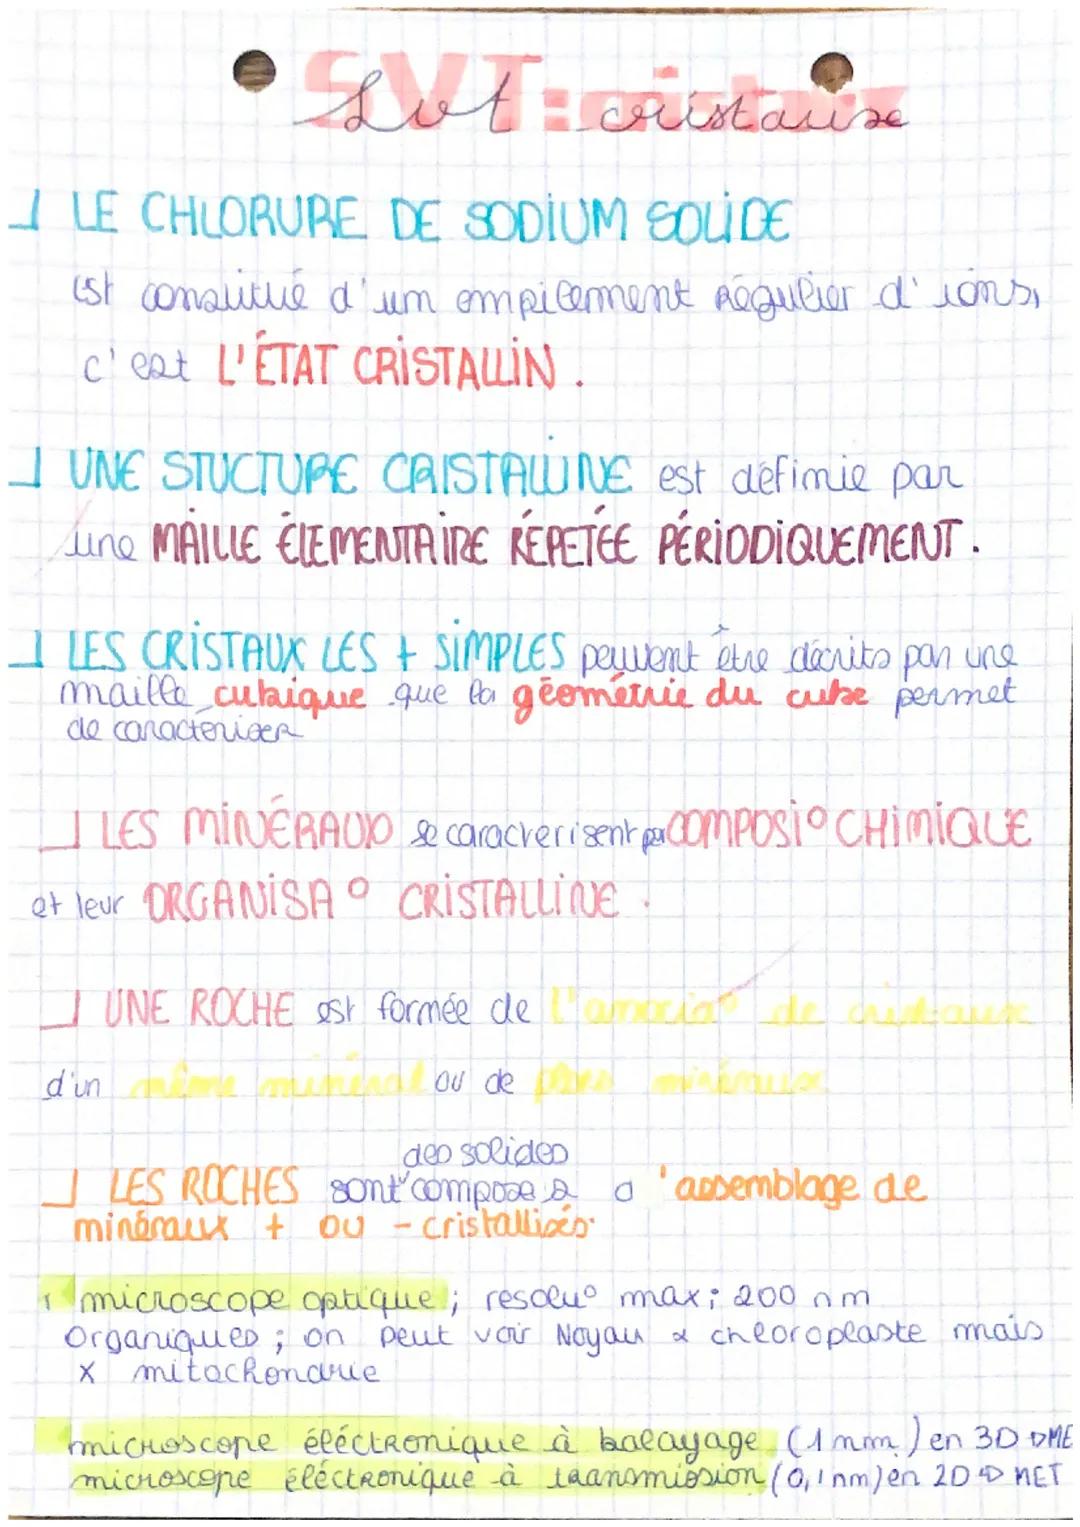 SVT : cristaux
Svt : cristaux
LE CHLORURE DE SODIUM SOLIDE
est constitué d'un empilement régulier d'ions,
c'est L'ÉTAT CRISTALLIN.
UNE STUCTURE CRISTALLINE est définie par
une MAILLE ÉLEMENTAIRE RÉPETÉE PÉRIODIQUEMENT.
LES CRISTAUX LES + SIMPLES peuvent être décrits par une
maille cubique que la géométrie du cube permet
de caractériser
LES MINÉRAUX se caracterisent par COMPOSI° CHIMIQUE
et leur ORGANISA° CRISTALLINE.
UNE ROCHE est formée de l'associa° de cristaux
d'un même minéral ou de plrs minéraux
des solides
LES ROCHES sont composés d 'assemblage de
minéraux + ou - cristallisés.
microscope optique ; resolu° max ; 200 nm
Organiques ; on peut voir Noyau & chloroplaste mais
x mitochondrie
microscope éléctronique à balayage (1 nm) en 3D ME
microscope éléctronique à transmission (0,1 nm) en 2D MET